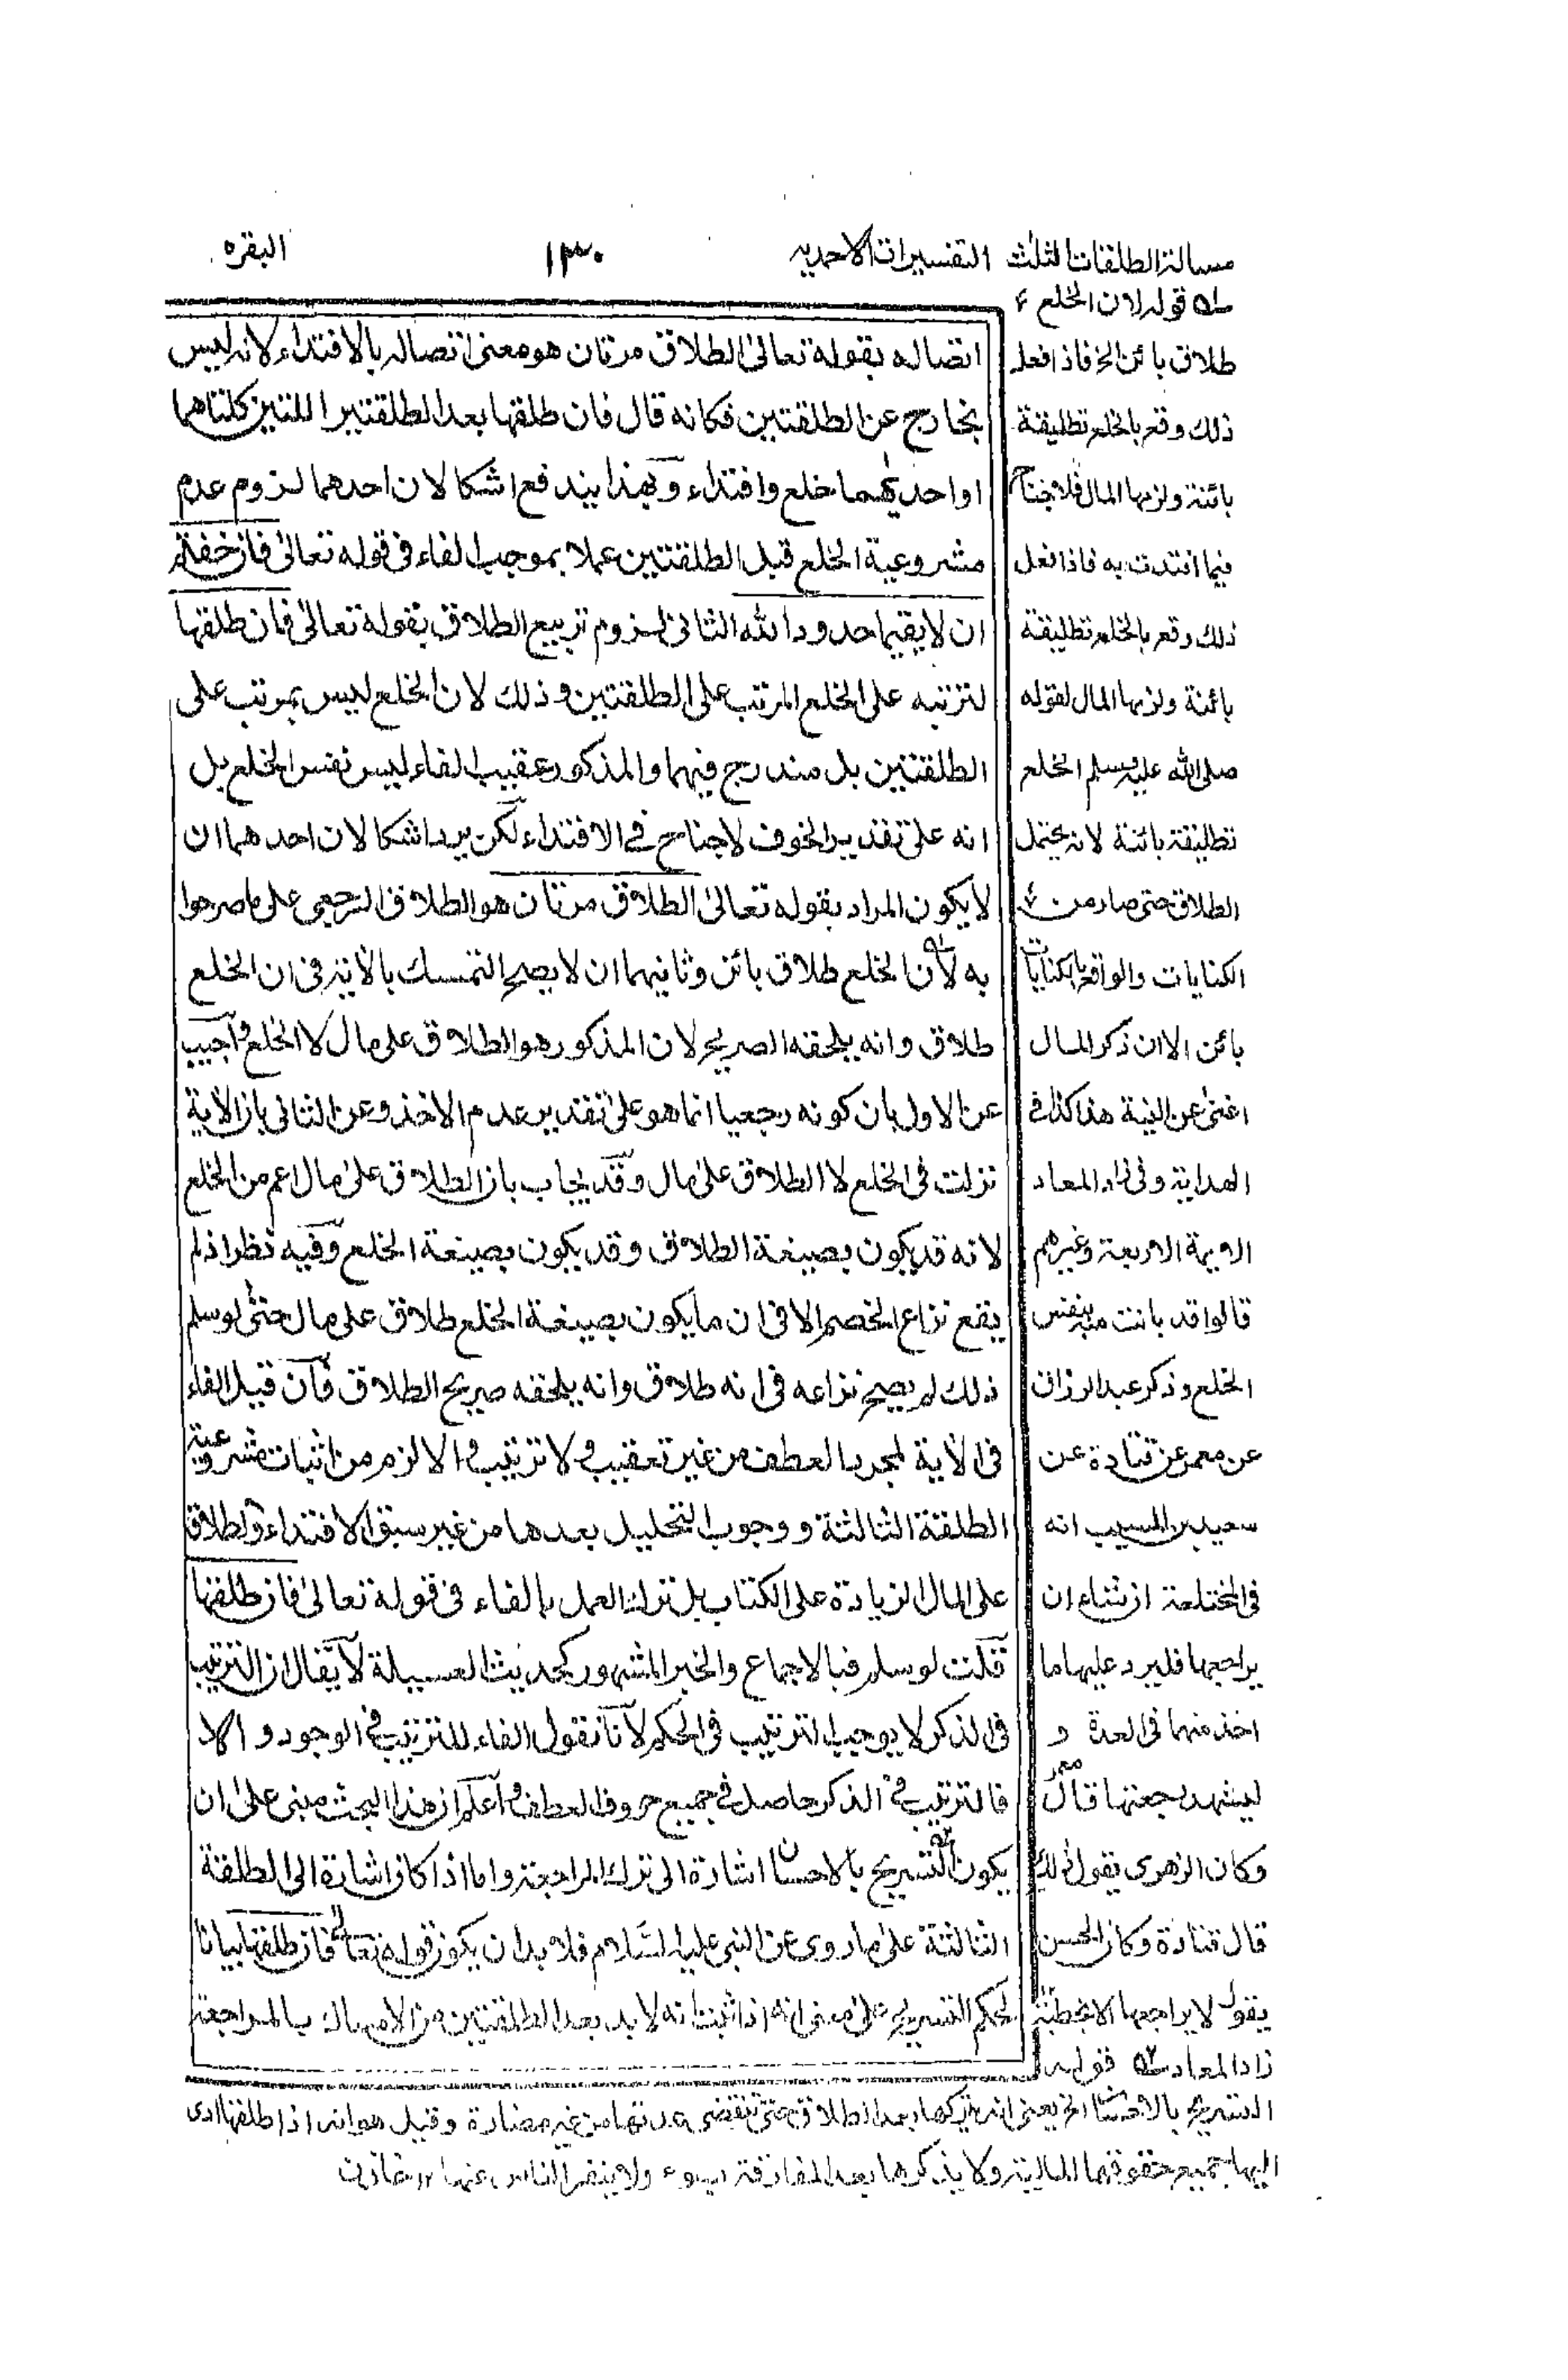 مسالة الطلقات الثلث التفسيرات الاحمدیه ١٣٠ البقره
اتصاله بقوله تعالیٰ الطلاق مرتان هو معنی اتصاله بالافتداء لانه ليس
بخارج عن الطلقتين فكانه قال فان طلقها بعد الطلقتين اللتين كلتاهما
او احديهما خلع وافتداء وبهذا يندفع اشكالان احدهما لزوم عدم
مشروعية الخلع قبل الطلقتين عملا بموجب الفاء فی قوله تعالیٰ فان خفتم
ان لا يقيما حدود الله الثانی لزوم تربيع الطلاق بقوله تعالیٰ فان طلقها
لترتبه علی الخلع المرتب علی الطلقتين وذلك لان الخلع ليس بمرتب علی
الطلقتين بل مندرج فيهما والمذكور عقيب الفاء ليس نفس الخلع بل
انه علی تقدير الخوف لا جناح فے الافتداء لكن يرد اشكالان احدهما ان
لا يكون المراد بقوله تعالیٰ الطلاق مرتان هو الطلاق الرجعی علی ما صرحوا
به لان الخلع طلاق بائن وثانيهما ان لا يصح التمسك بالأية فی ان الخلع
طلاق وانه يلحقه الصريح لان المذكور هو الطلاق علی مال لا الخلع وأجيب
عن الاول بان كونه رجعيا انما هو علیٰ تقدير عدم الاخذ وعن الثانی بان الأية
نزلت فی الخلع لا الطلاق علیٰ مال وقد يجاب بان الطلاق علیٰ مال اعم من الخلع
لانه قد يكون بصيغة الطلاق وقد يكون بصيغة الخلع وفيه نظر اذ لم
يقع نزاع الخصم الا فی ان ما يكون بصيغة الخلع طلاق علی مال حتیٰ لو سلم
ذلك لم يصح نزاعه فی انه طلاق وانه يلحقه صريح الطلاق فأن قيل الفاء
فی الأية لمجرد العطف من غير تعقيب ولا ترتيب والا لزم من اثبات مشروعية
الطلقة الثالثة ووجوب التحليل بعدها من غير سبق الافتداء والطلاق
علی المال الزيادة علی الكتاب بل ترك العمل بالفاء فی قوله تعالیٰ فان طلقها
قلت لو سلم فبالاجماع والخبر المشهور كحديث العسيلة لا يقال ان الترتيب
فی الذكر لا يوجب الترتيب فی الحكم لأنا نقول الفاء للترتيب فی الوجود والا
فالترتيب فی الذكر حاصل فی جميع حروف العطف وأعلم ان هذا البحث مبنی علیٰ ان
يكون التسريح بالاحسان اشارة الی ترك المراجعة واما اذا كان اشارة الی الطلقة
الثالثة علیٰ ما روی عن النبی عليه السلام فلا بد ان يكون قوله تعالی فان طلقها بيانا
لحكم التسريح علی معنی انه اذا ثبت انه لا بد بعد الطلقتين من الامساك بالمراجعة
ـه١ قوله لان الخلع
طلاق بائن الخ فاذا فعل
ذلك وقع بالخلع تطليقة
بائنة ولزمها المال فلا جناح
فيما افتدت به فاذا فعل
ذلك وقع بالخلع تطليقة
بائنة ولزمها المال لقوله
صلی الله عليه وسلم الخلع
تطليقة بائنة لانه يحتمل
الطلاق حتی صار من
الكنايات والواقع بالكنايات
بائن الا ان ذكر المال
اغنی عن النية هذا كذا فے
الهداية وفی زاد المعاد
الايمة الاربعة وغيرهم
قالوا قد بانت منه بنفس
الخلع وذكر عبد الرزاق
عن معمر عن قتادة عن
سعيد بن المسيب انه
فی المختلعة ان شاء ان
يراجعها فليرد عليها ما
اخذ منها فی العدة و
ليشهد رجعتها قال معمر
وكان الزهری يقول ذلك
قال قتادة وكان الحسن
يقول لا يراجعها الا بخطبة
زاد المعاد ـه٢ قوله
التسريح بالاحسان الخ يعنی انه يتركها بعد الطلاق حتی تنقضی عدتها من غير مضارة وقيل هو انه اذا طلقها ادی
اليها جميع حقوقها المالية ولا يذكرها بعد المفارقة بسوء ولا ينفر الناس عنها ١٢ خازن